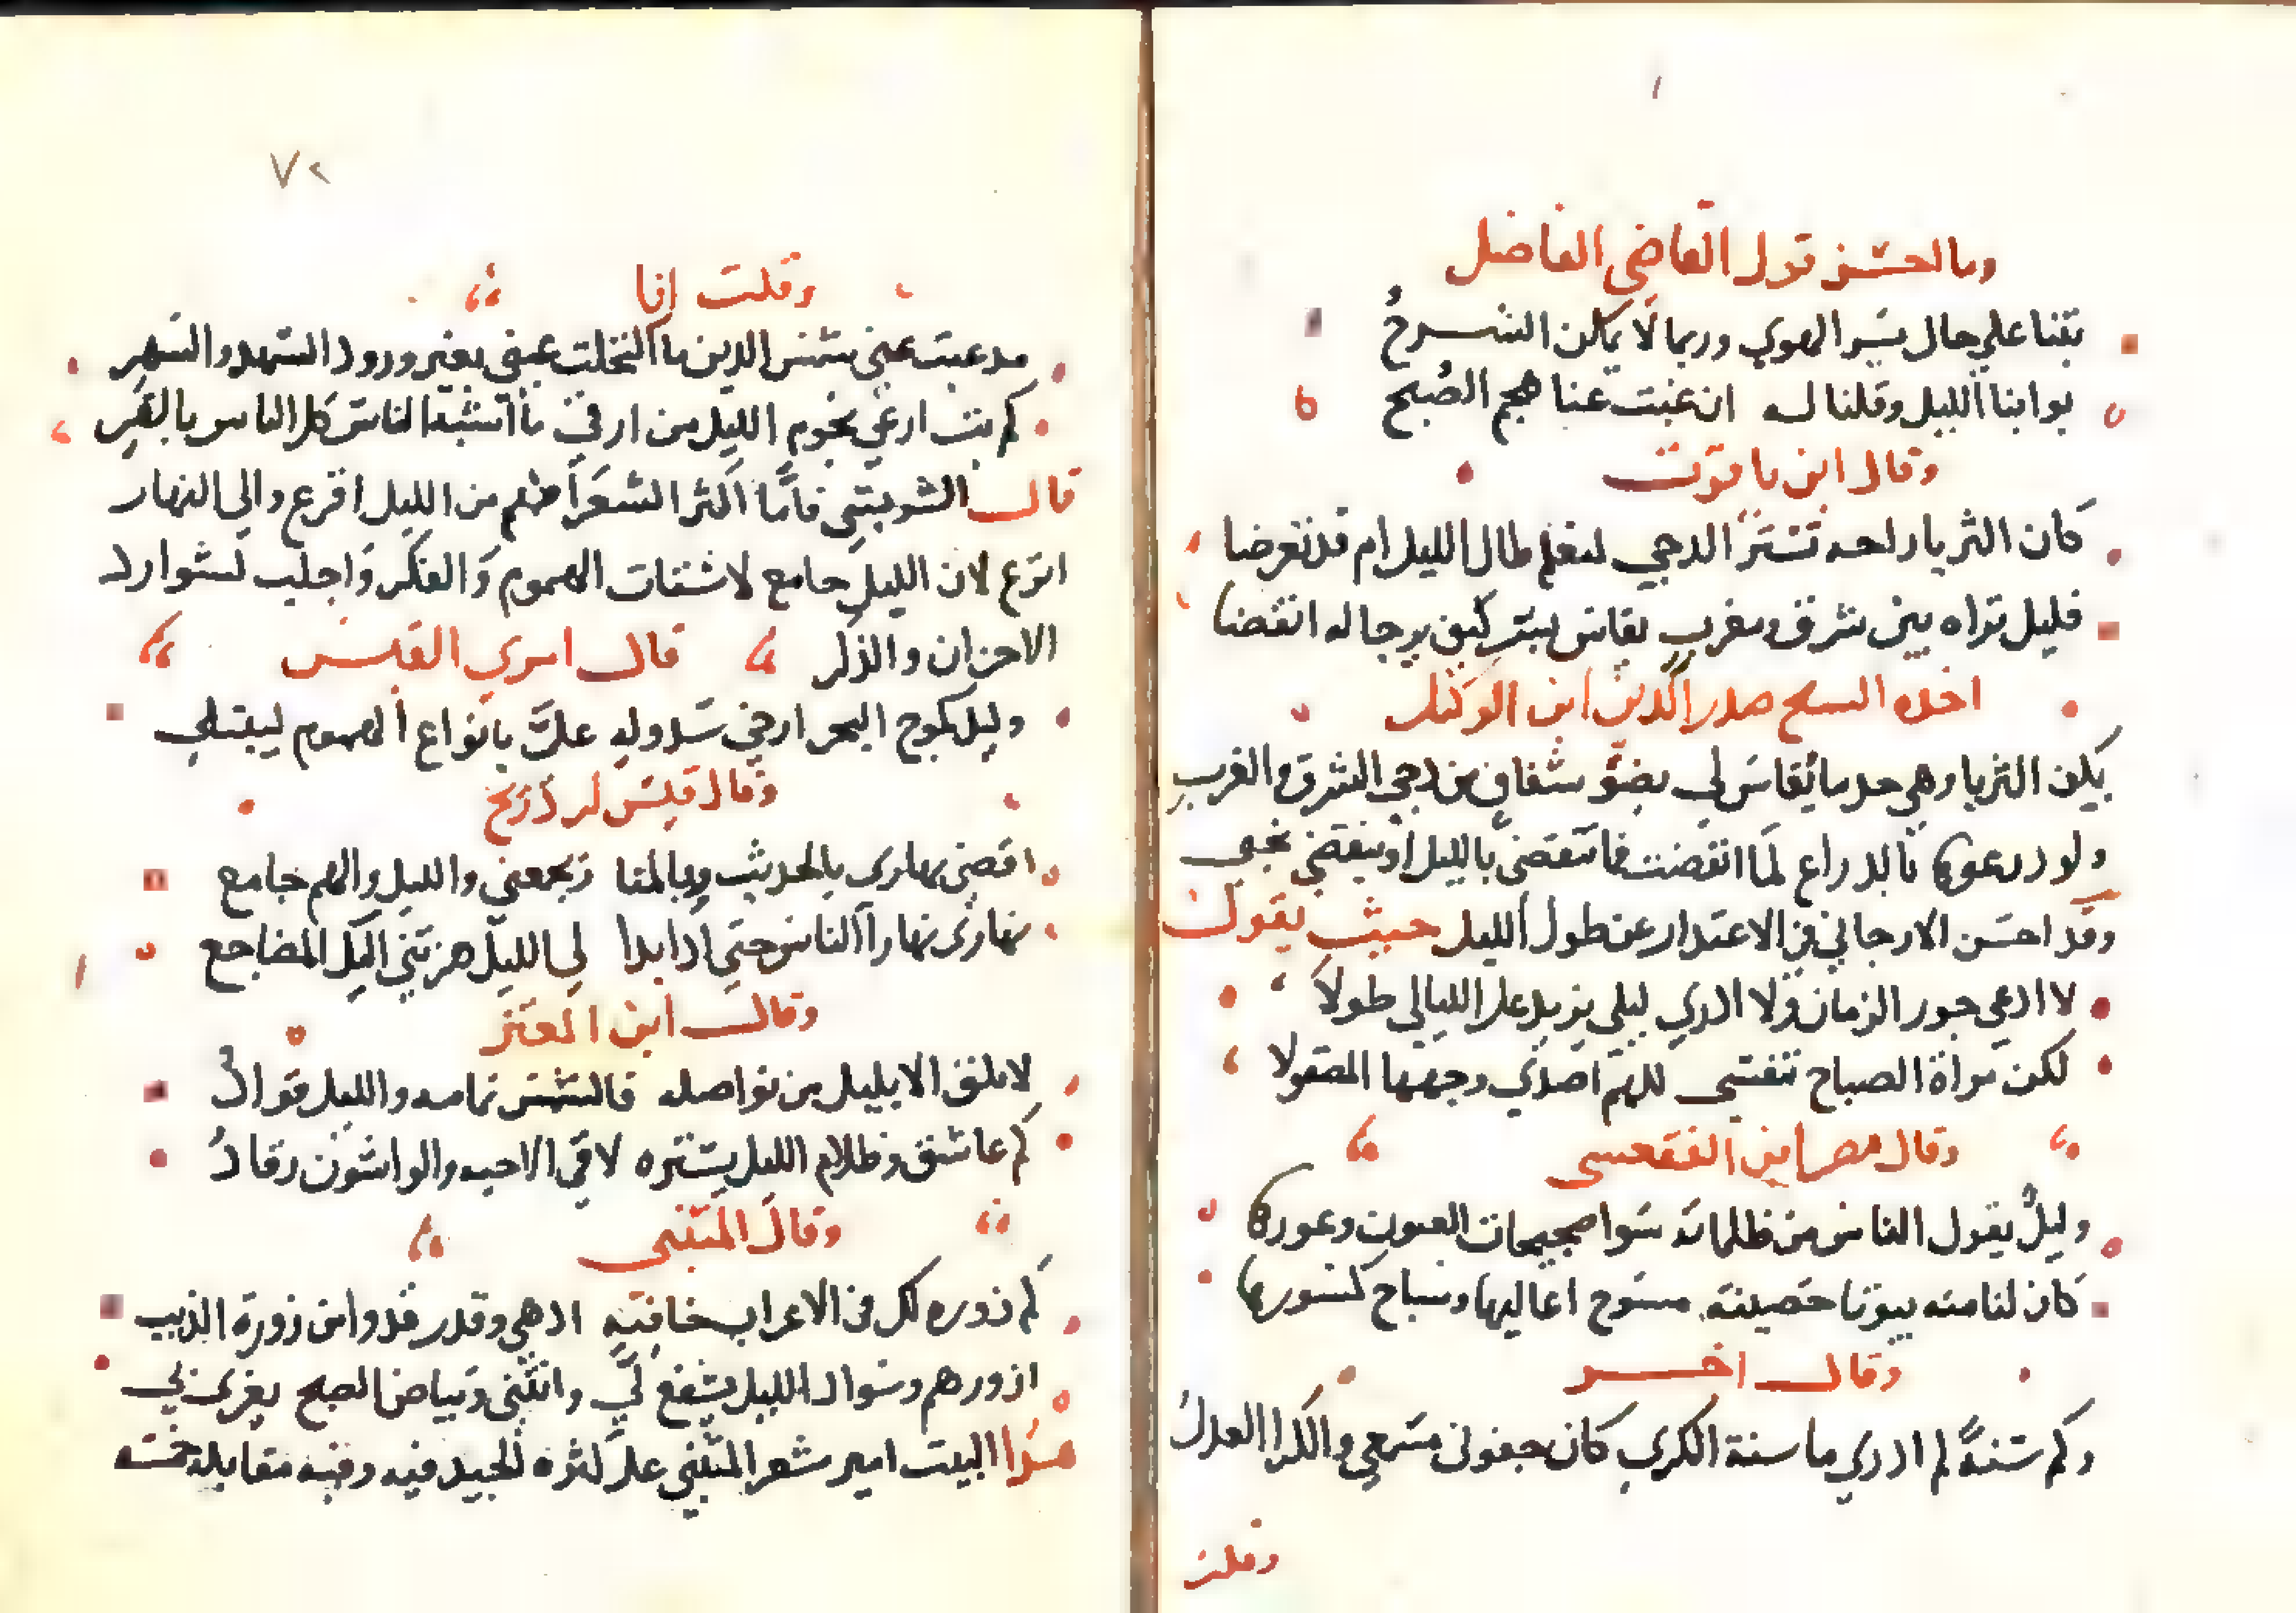 وما احسن قول القاضي الفاضل
بتنا علي حال يسر الهوي وربما لا يمكن الشرح
بوابنا الليل وقلنا له ان غبت عنا هجم الصبح
وقال ابن
كان الثريا راحه تشبر الدجي لتعلم طال الليل ام قد تعرضا
فليل تراه بين شرق ومغرب يقاس بشبر كيف يرجا له انقضا
اخده السح صدر الدين ابن الوكيل
بكف الثريا وهي جدما يقاس لي شقاق من دجي الشرق والغرب
ولو درعوها بالدراع لما انقضت فما تنقضي بالليل او ينقضي نحبي
وقد احسن الارجاني في الاعتدار عن طول الليل حيث يقول
لا ادعي جور الزمان ولا ادري ليلي يزيد علا الليالي طولا
لكن مراة الصباح تنفسي للهم اصدي وجهها المصقولا
وقال الفقعسي
وليل يقول الناس من ظلماته سوا صحيحات العيون وعورها
كان لنا منه بيوتا حصينة مسوح اعاليها وساج كسورها
وقال اخر
وكم سنة لم ادري ما سنة الكري كان جفوني مسمعي والكرا العدل
وقلت
٧٢
وقلت انا
مدغبت عني شمس الدين ما اكتحلت عيني بغير ورود السهد والسهر
كم بت ارعي نجوم الليل من ارقي ما اشبه الناس كل الناس بالقمر
قال فاما اكثر الشعرا من الليل افرع والي النهار
انزع لان الليل جامع لاشتات الهموم والفكر واجلب لشوارد
الاحزان والذكر قال امري القيس
وليل كموج البحر ارخي سدوله علي بانواع الهموم ليبتلي
وقال قيس ابن ذريح
اقضي نهاري بالحديث وبالمنا ويجمعني والليل والهم جامع
نهاري نهار الناس حتي ادا بدا لي الليل هزتني اليك المضاجع
وقال ابن المعتز
لا تلق الا بليل من تواصله فالشمس نمامه والليل قواد
كم عاشق وظلام الليل يستره لاقي الاحبه والواشون رقاد
وقال المتنبي
كم زوره لك في الاعراب خافية ادهي وقد رقدوا من زورة الذيب
ازورهم وسواد الليل يشفع لي وانثني وبياض الصبح يغري بي
هدا البيت امير شعر المتنبي علي كثره الجيد فيه وفيه مقابلة خمسه